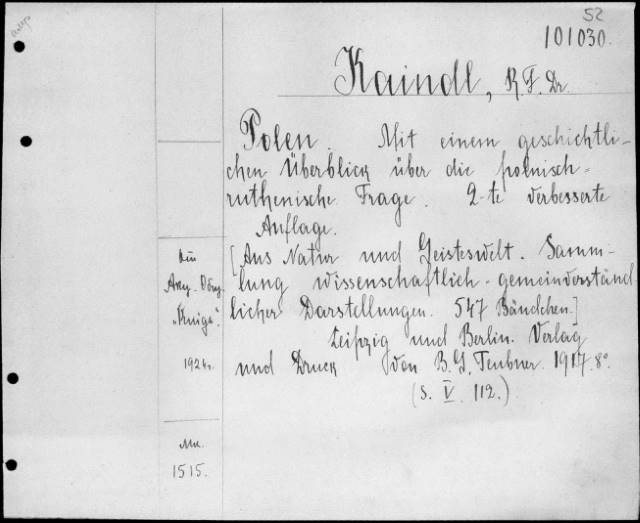 52
101030.
Kaindl, R. F. Dr.
Polen. Mit einem geschichtli-
chen Überblick über die polnisch-
ruthenische Frage. 2-te verbesserte
Auflage.
[Aus Natur und Geisteswelt. Samm-
lung wissenschaftlich-gemeinverständ
licher Darstellungen. 547 Bändchen.]
Leipzig und Berlin. Verlag
und Druck von B. G. Teubner. 1917. 8°.
(S. V. 112.)
"Книга".
1924.
1515.